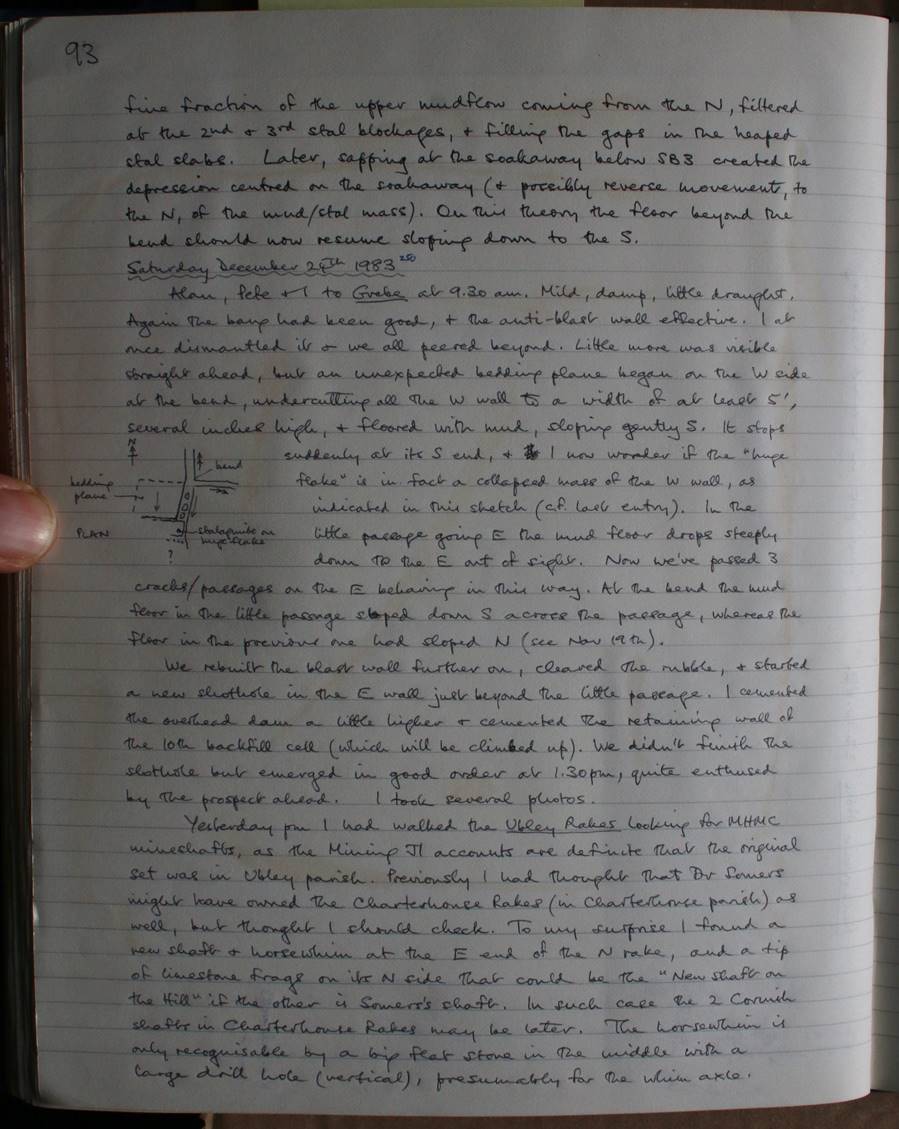 93
fine fraction of the upper mudflow coming from the N, filtered
at the 2nd + 3rd stal blockages, + filling the gaps in the heaped
stal slabs. Later, sapping at the soakaway below SB3 created the
depression centred on the soakaway (+ possibly reverse movement, to
the N, of the mud/stal mass). On this theory the floor beyond the
bend should now resume sloping down to the S.
Saturday December 24th 1983
Alan, Pete + I to Grebe at 9.30 am. Mild, damp, little draught.
Again the bang had been good, + the anti-blast wall effective. I at
once dismantled it + we all peered beyond. Little more was visible
straight ahead, but an unexpected bedding plane began on the W side
at the bend, undercutting all the W wall to a width of at least 5',
several inches high, + floored with mud, sloping gently S. It stops
suddenly at its S end, + I now wonder if the "huge
flake" is in fact a collapsed mass of the W wall, as
indicated in this sketch (c.f. last entry). In the
little passage going E the mud floor drops steeply
down to the E out of sight. Now we've passed 3
N
bend
bedding
plane
PLAN
stalagmite on
huge flake
?
cracks/passages on the E behaving in this way. At the bend the mud
floor in the little passage sloped down S across the passage, whereas the
floor in the previous one had sloped N (see Nov 19th).
We rebuilt the blast wall further on, cleared the rubble, + started
a new shothole in the E wall just beyond the little passage. I cemented
the overhead dam a little higher + cemented the retaining wall of
the 10th backfill cell (which will be climbed up). We didn't finish the
shothole but emerged in good order at 1.30pm, quite enthused
by the prospect ahead. I took several photos.
Yesterday pm I had walked the Ubley Rakes looking for MHMC
mineshafts, as the Mining Jl accounts are definite that the original
set was in Ubley parish. Previously I had thought that Dr Somers
might have owned the Charterhouse Rakes (in Charterhouse parish) as
well, but thought I should check. To my surprise I found a
new shaft + horsewhim at the E end of the N rake, and a tip
of limestone frags on its N side that could be the "New shaft on
the Hill" if the other is Somers's shaft. In such case the 2 Cornish
shafts in Charterhouse Rakes may be later. The horsewhim is
only recognisable by a big flat stone in the middle with a
large drill hole (vertical), presumably for the whim axle.